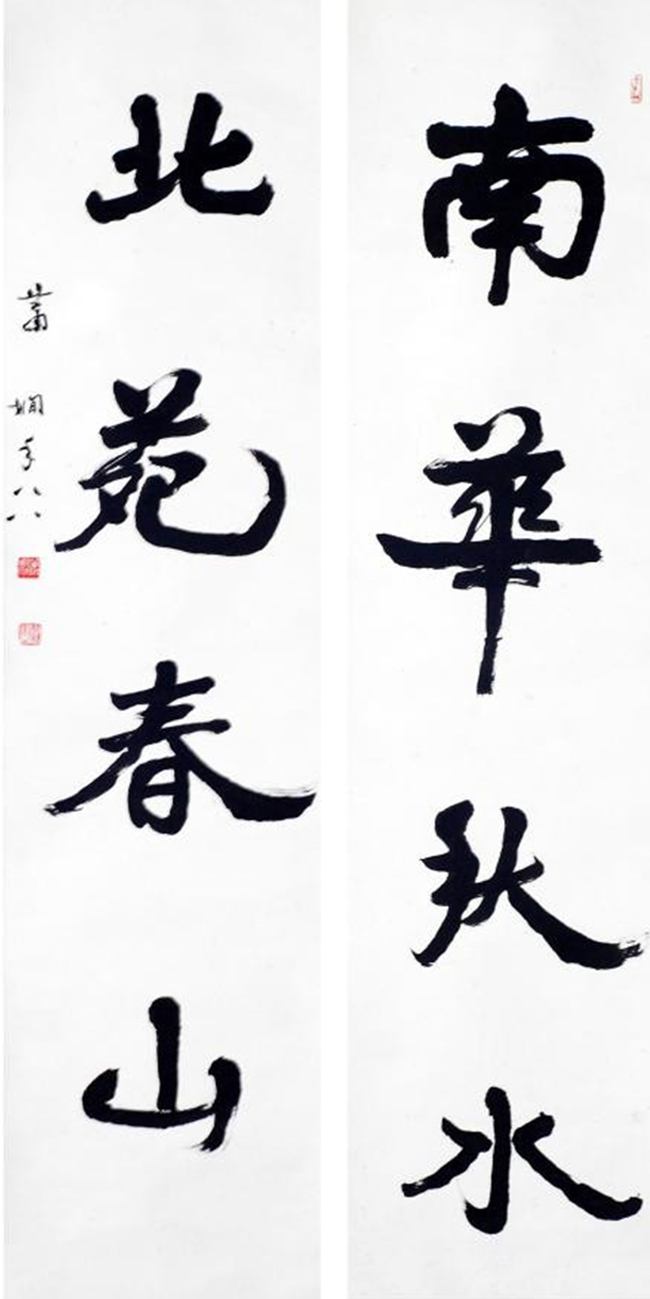 南華秋水
北苑春山
蕭嫻年八八